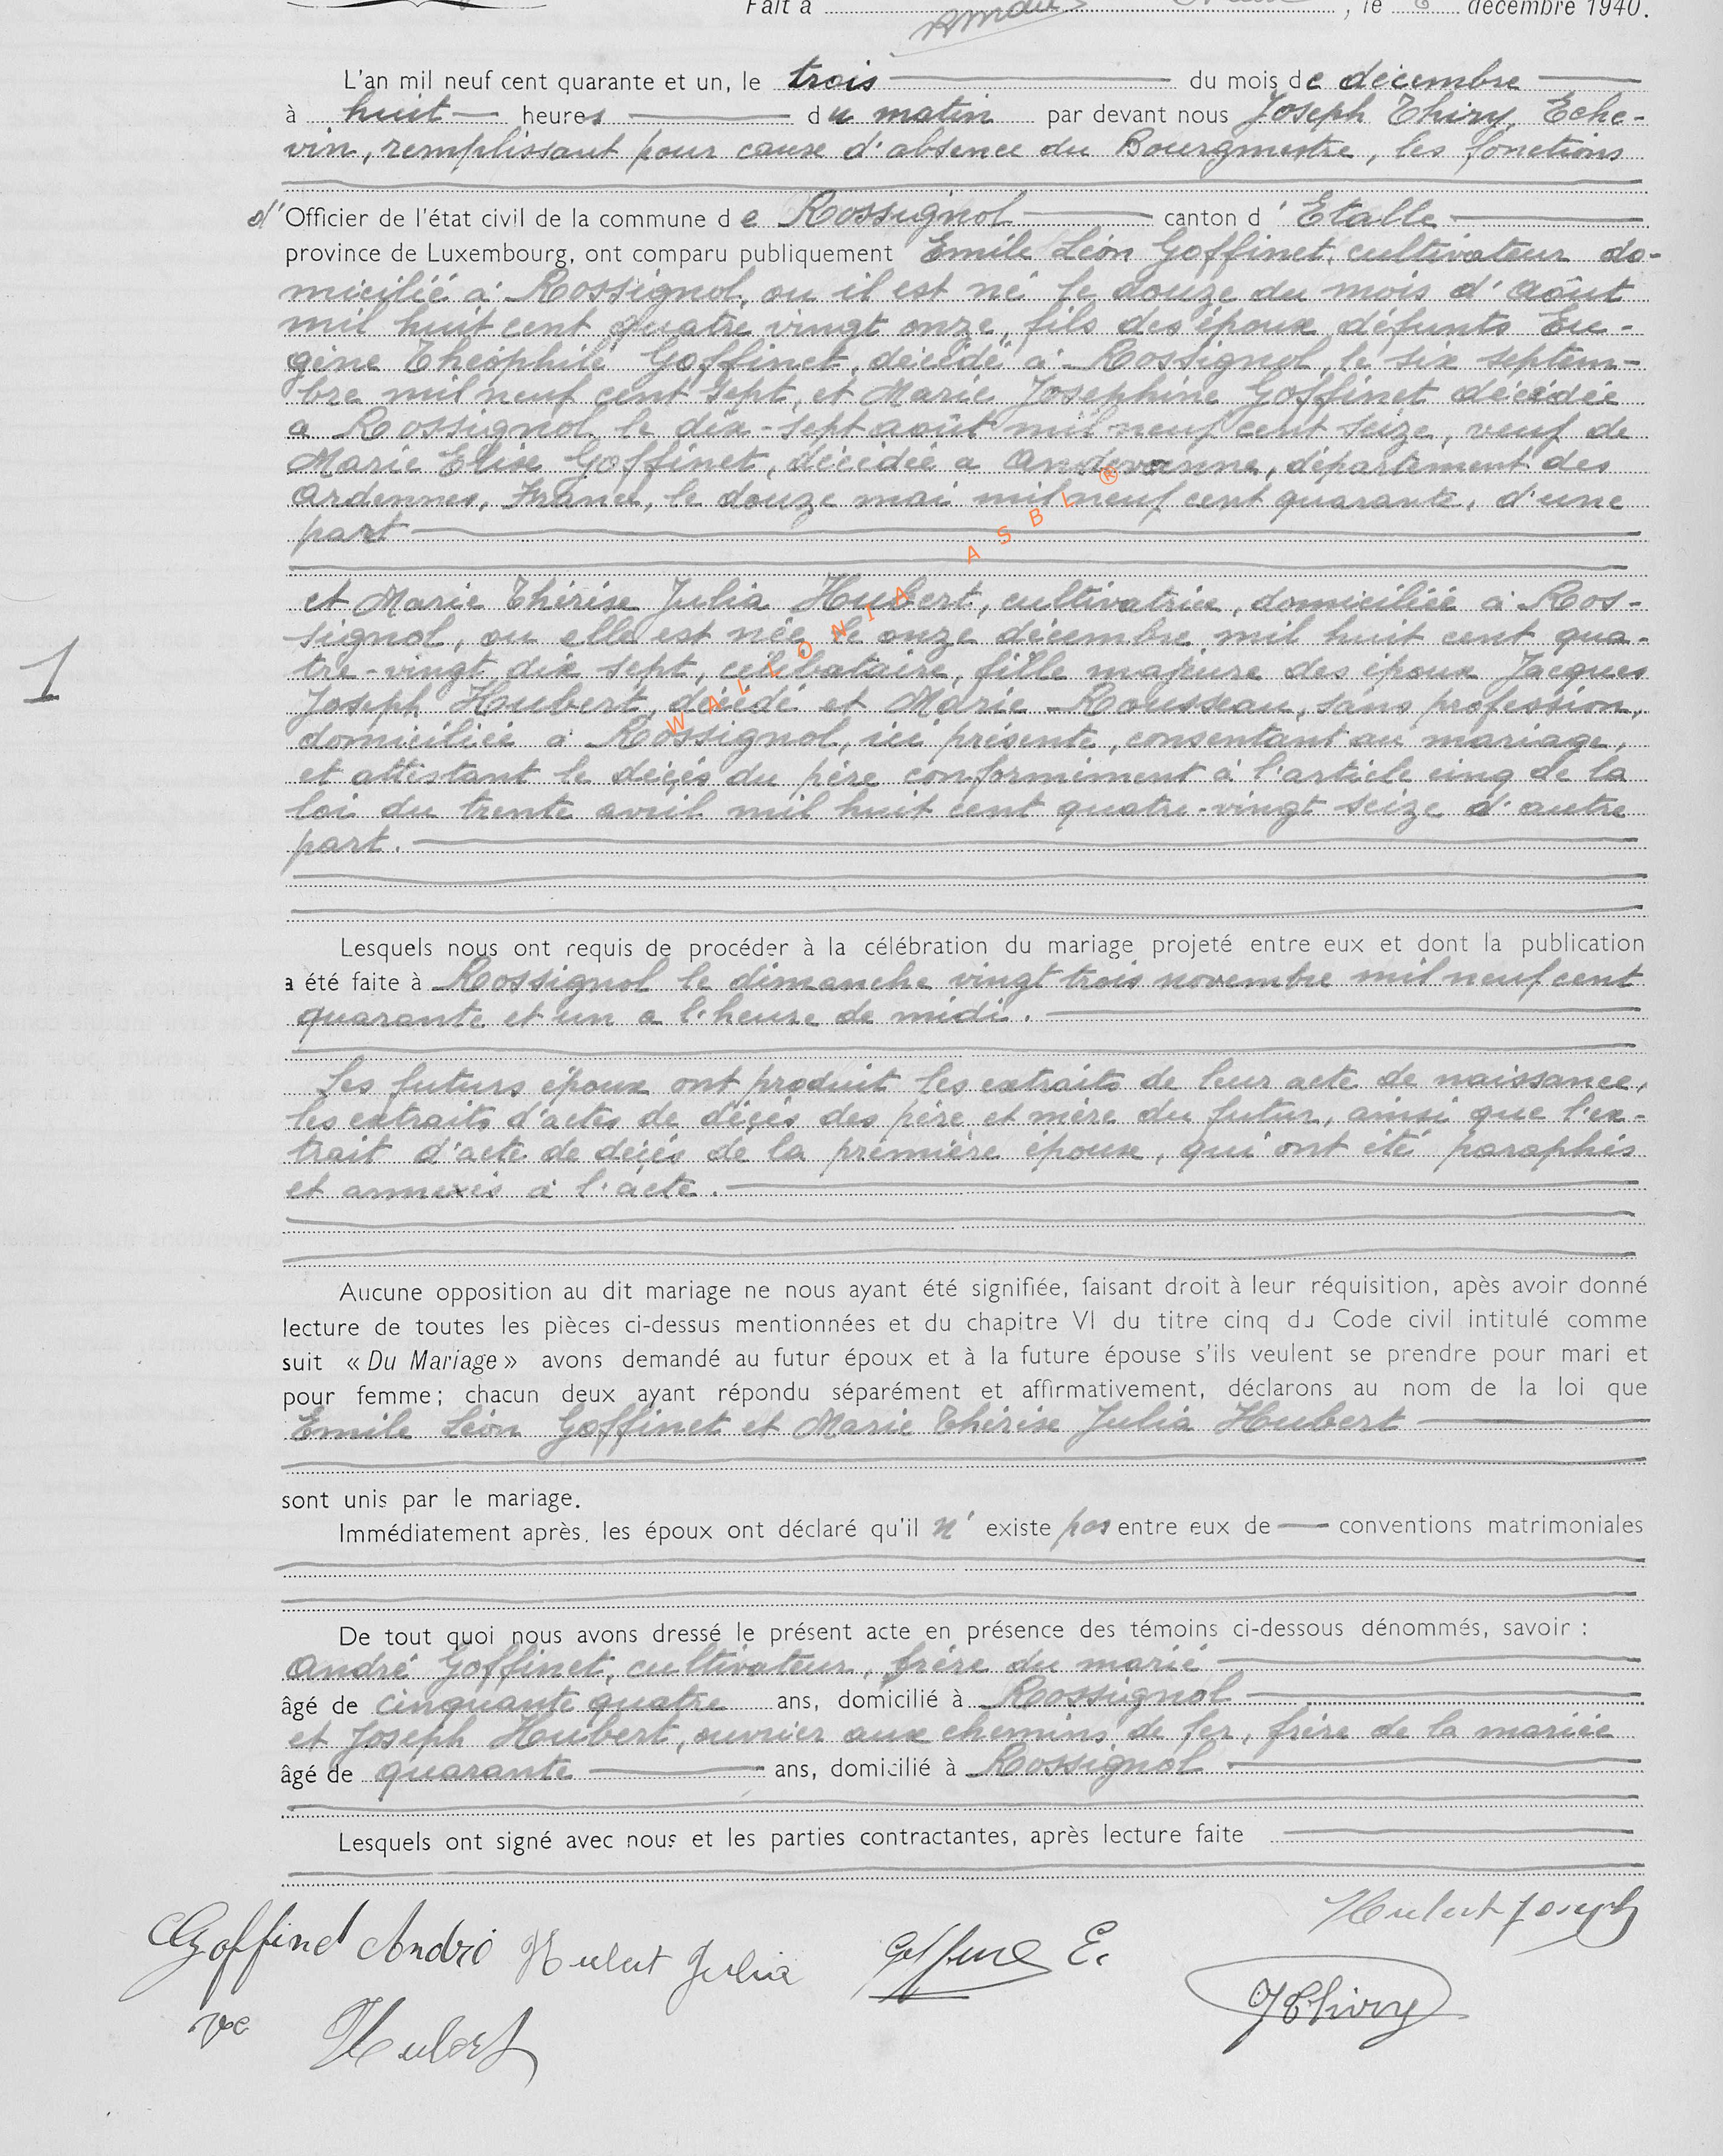 Fait à , le décembre 1940.
L'an mil neuf cent quarante et un, le trois du mois de décembre
à huit heures du matin par devant nous Joseph Thiry, Eche-
vin, remplissant pour cause d'absence du Bourgmestre, les fonctions
d'Officier de l'état civil de la commune de Rossignol canton d'Etalle
province de Luxembourg, ont comparu publiquement Emile Léon Goffinet, cultivateur do-
micilié à Rossignol, ou il est né le douze du mois d'Août
mil huit cent quatre vingt onze, fils des époux défunts Eu-
gène Théophile Goffinet, décédé à Rossignol, le six septem-
bre mil neuf cent sept, et Marie Joséphine Goffinet décédée
a Rossignol le dix-sept août mil neuf cent seize, veuf de
Marie Elise Goffinet, décédée a Andevanne, département des
Ardennes, France, le douze mai mil neuf cent quarante, d'une
part
et Marie Thérèse Julia Hubert, cultivatrice, domiciliée à Ros-
signol, ou elle est née le onze décembre mil huit cent qua-
tre-vingt dix sept, célibataire, fille majeure des époux Jacques
1
Joseph Hubert, décédé et Marie Rousseau, sans profession,
domiciliée à Rossignol, ici présente, consentant au mariage,
et attestant le décés du père conformément à l'article cinq de la
loi du trente avril mil huit cent quatre-vingt seize d'autre
part.
WALLONIA ASBL ®
Lesquels nous ont requis de procéder à la célébration du mariage projeté entre eux et dont la publication
a été faite à Rossignol le dimanche vingt trois novembre mil neuf cent
quarante et un a l'heure de midi.
Les futurs époux ont produit les extraits de leur acte de naissance,
les extraits d'actes de décés des père et mère du futur, ainsi que l'ex-
trait d'acte de décés de la première épouse, qui ont été paraphés
et annexés à l'acte.
Aucune opposition au dit mariage ne nous ayant été signifiée, faisant droit à leur réquisition, apès avoir donné
lecture de toutes les pièces ci-dessus mentionnées et du chapitre VI du titre cinq du Code civil intitulé comme
suit « Du Mariage » avons demandé au futur époux et à la future épouse s'ils veulent se prendre pour mari et
pour femme; chacun deux ayant répondu séparément et affirmativement, déclarons au nom de la loi que
Emile Léon Goffinet et Marie Thérèse Julia Hubert
sont unis par le mariage.
Immédiatement après, les époux ont déclaré qu'il n'existe pas entre eux de conventions matrimoniales
De tout quoi nous avons dressé le présent acte en présence des témoins ci-dessous dénommés, savoir :
André Goffinet, cultivateur, frère du marié
âgé de cinquante quatre ans, domicilié à Rossignol
et Joseph Hubert, ouvrier aux chemins de fer, frère de la mariée
âgé de quarante ans, domicilié à Rossignol
Lesquels ont signé avec nous et les parties contractantes, après lecture faite
Hubert Joseph
Goffinet André Hubert Julia Goffinet E.
JThiry
Ve Hubert